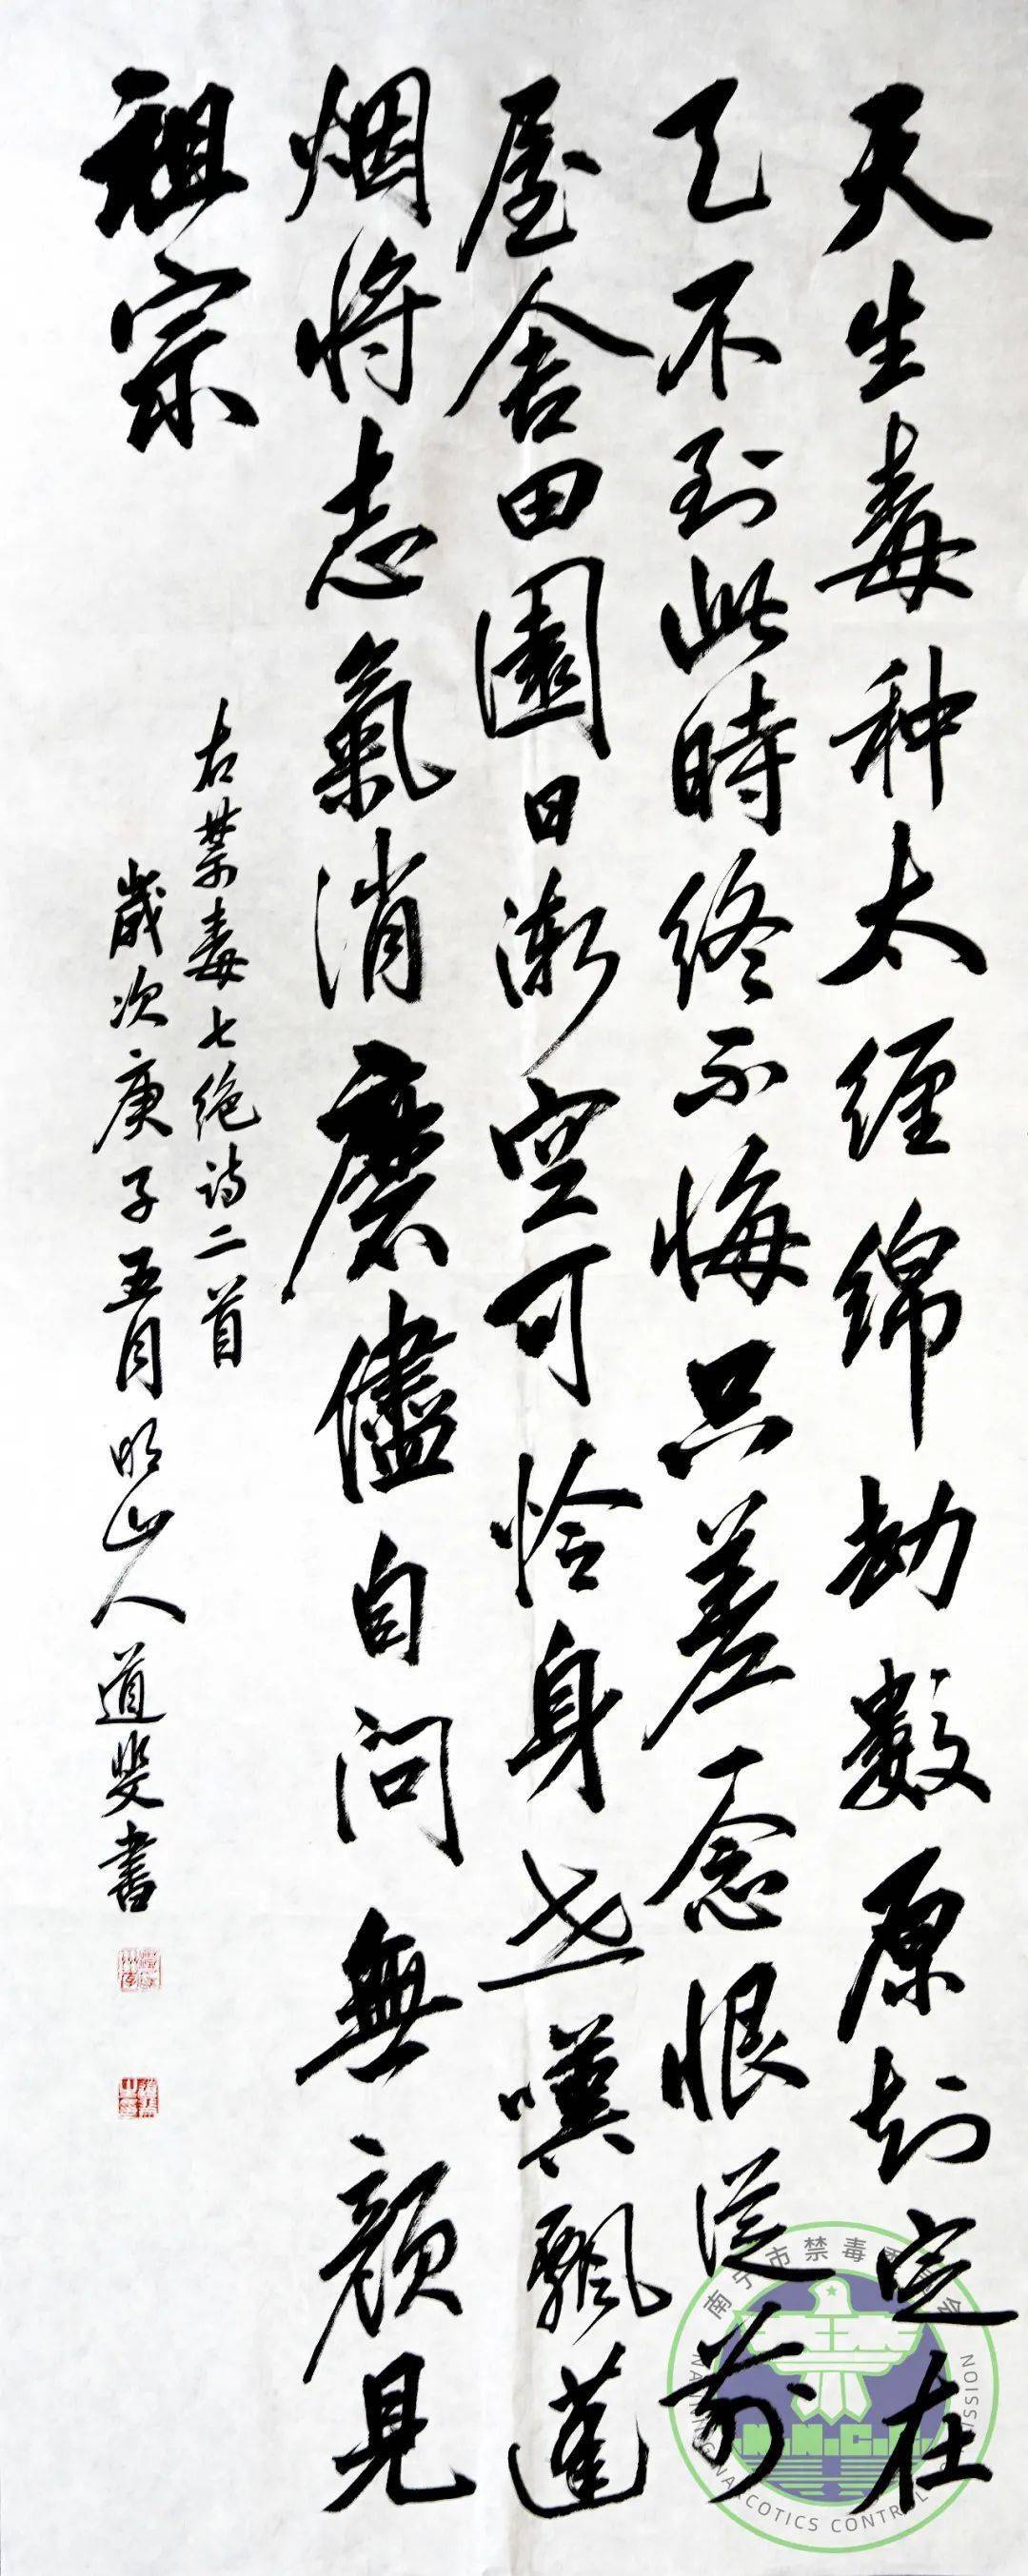 天生毒种太缠绵劫数原知定在
天不到此時终不悔只差一念恨從前
屋舍田園日漸空可怜身世嘆飄蓬
烟将志氣消磨儘自问無颜見
祖宗
右禁毒七绝诗二首
歲次庚子五月 明山人道斐書
南宁市禁毒委员会
NANNING NARCOTICS CONTROL COMMISSION
N.N.C.C